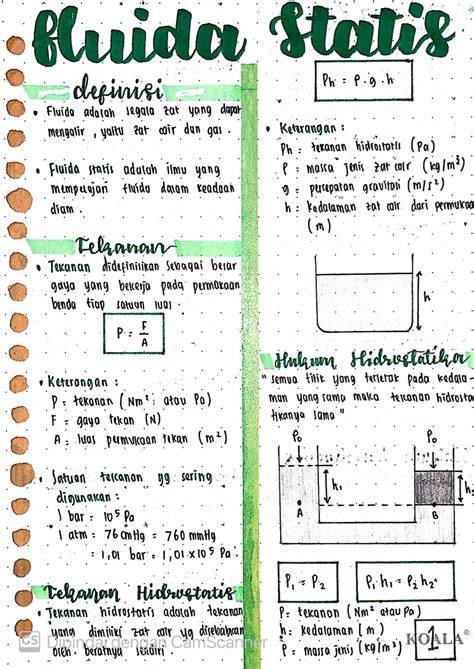 Fluida Statis
definisi
• Fluida adalah segala zat yang dapat
mengalir, yaitu zat cair dan gas.
• Fluida statis adalah ilmu yang
mempelajari fluida dalam keadaan
diam.
Tekanan
• Tekanan didefinisikan sebagai besar
gaya yang bekerja pada permukaan
benda tiap satuan luas.
P = F/A
• Keterangan :
P = tekanan (Nm² atau Pa)
F = gaya tekan (N)
A = luas permukaan tekan (m²)
• Satuan tekanan yg sering
digunakan :
1 bar = 10⁵ Pa
1 atm = 76 cmHg = 760 mmHg
= 1,01 bar = 1,01 x 10⁵ Pa.
Tekanan Hidrostatis
• Tekanan hidrostatis adalah tekanan
yang dimiliki zat cair yg disebabkan
oleh beratnya sendiri
CS Dipindai dengan CamScanner
Ph = ρ . g . h
• Keterangan :
Ph = tekanan hidrostatis (Pa)
ρ = massa jenis zat cair (kg/m³)
g = percepatan gravitasi (m/s²)
h = kedalaman zat cair dari permukaan
(m)
h
Hukum Hidrostatika
" semua titik yang terletak pada kedala-
man yang sama maka tekanan hidrosta
tikanya sama "
Po Po
h₁ h₂
A B
P₁ = P₂
ρ₁ . h₁ = ρ₂ h₂
P = tekanan (Nm² atau Pa)
h = kedalaman (m)
ρ = massa jenis (kg/m³)
1
KOALA®